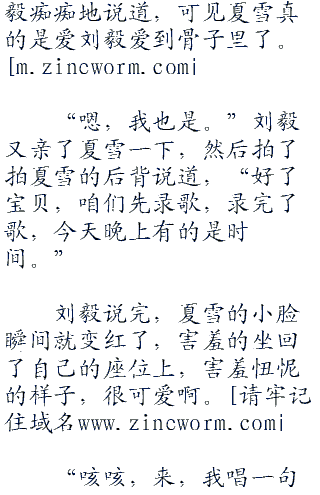 毅痴痴地说道，可见夏雪真
的是爱刘毅爱到骨子里了。
[m.zincworm.com|
“嗯，我也是。”刘毅
又亲了夏雪一下，然后拍了
拍夏雪的后背说道，“好了
宝贝，咱们先录歌，录完了
歌，今天晚上有的是时
间。”
刘毅说完，夏雪的小脸
瞬间就变红了，害羞的坐回
了自己的座位上，害羞忸怩
的样子，很可爱啊。[请牢记
住域名www.zincworm.com|
“咳咳，来，我唱一句